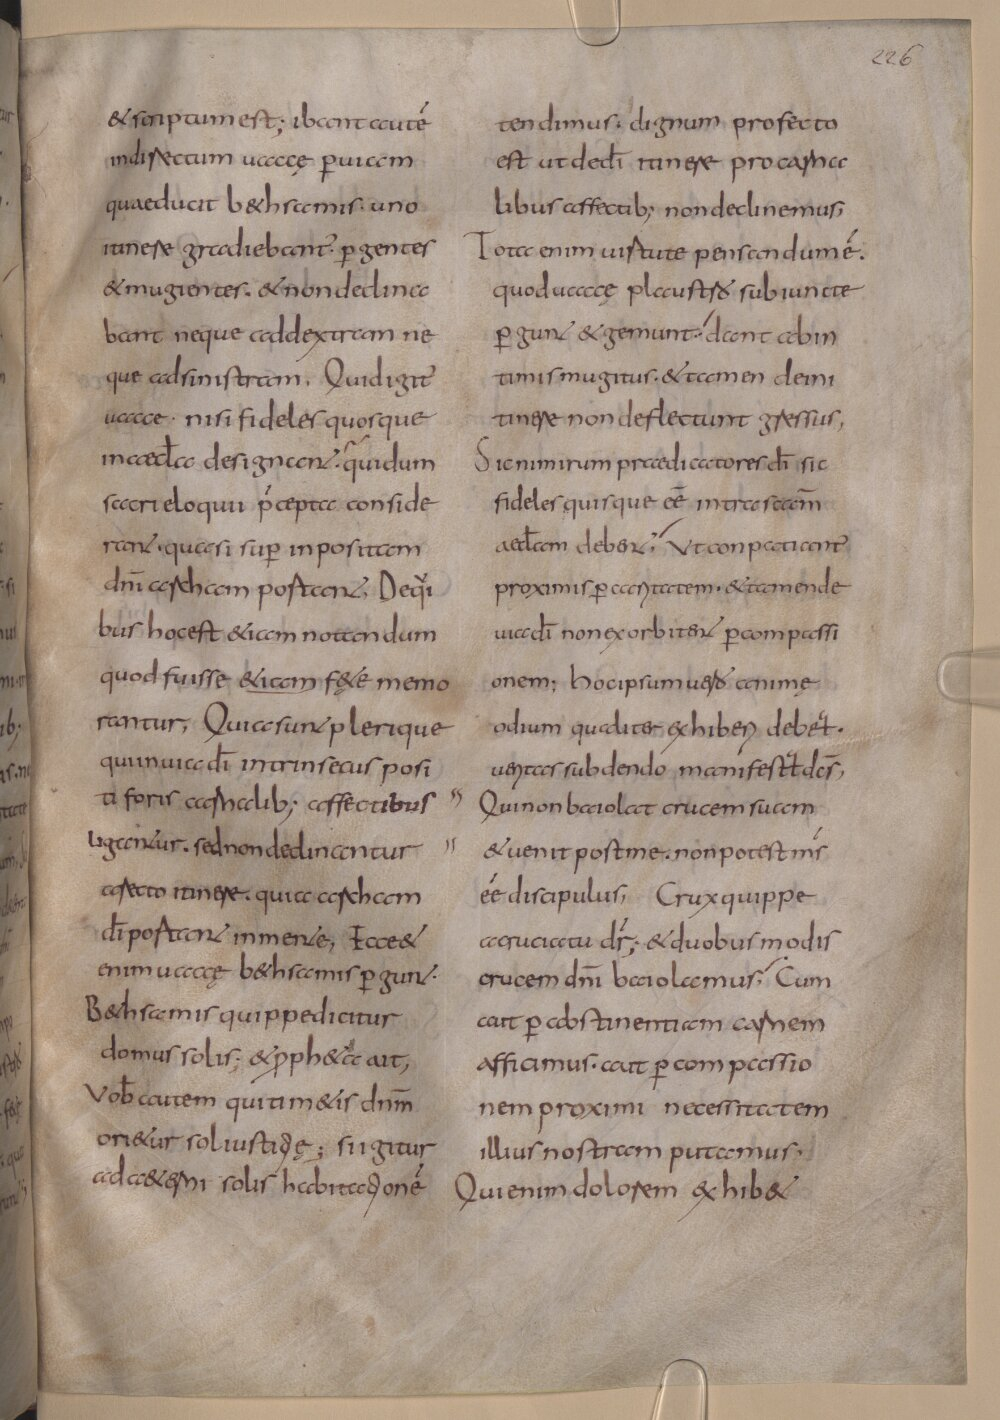 226
& scriptum est; ibant autē
indirectum uaccę p̲ uiam
quae ducit b&hsamis. uno
itinere gradiebant̄. p̲gentes
& mugientes. & non declina
bant neque ad dextram ne
que ad sinistram. Quid igit̄
uaccae. nisi fideles quosque
in aecl̄a designant̄. qui dum
sacri eloquii p̄cepta conside
rant̄. quasi sup̲ inpositam
dn̄i archam portant̄. De qi
bus hoc est & iam notandum
quod fuisse & iam f&ę memo
rantur, Quia sunt̄ plerique
qui in uia dī intrinsecus posi
ti foris carnalib; affectibus
ligantur. sed non declinantur
a recto itinere. quia archam
dī portant in mente, Ecce &
enim uaccę b&hsamis p̲gunt̄.
B&hsamis quippe dicitur
domus solis; & p̲ph&a ait,
Vob̄ autem qui tim&is dn̄m
ori&ur sol iustitię; si igitur
ad a&erni solis habitationē
tendimus. dignum profecto
est ut de dī itinere pro carna
libus affectib; non declinemus;
Tota enim uirtute pensandum ē.
quod uaccę plaustro subiuncte
p̲gunt & gemunt. dant ab in
timis mugitus. & tamen de iti
tinere non deflectunt gressus,
Sic nimirum praedicatores dī sic
fideles quisque eē intra scām
aecl̄am debent, Vt conpatiant̄
proximis p̲ caritatem. & tamen de
uia dī non exorbitent p̲ compassi
onem; hoc ipsum uero animę
odium qualiter exhiberi debeat.
ueritas subdendo manifestat dc̄s,
Qui non baiolat crucem suam
& uenit post me. non potest ms
eē discipulus, Crux quippe
a cruciatu dr̄; & duobus modis
crucem dn̄i baiolamus, Cum
aut p̲ abstinentiam carnem
afficimus. aut p̲ compassio
nem proximi necessitatem
illius nostram putamus.
Qui enim dolorem exhib&